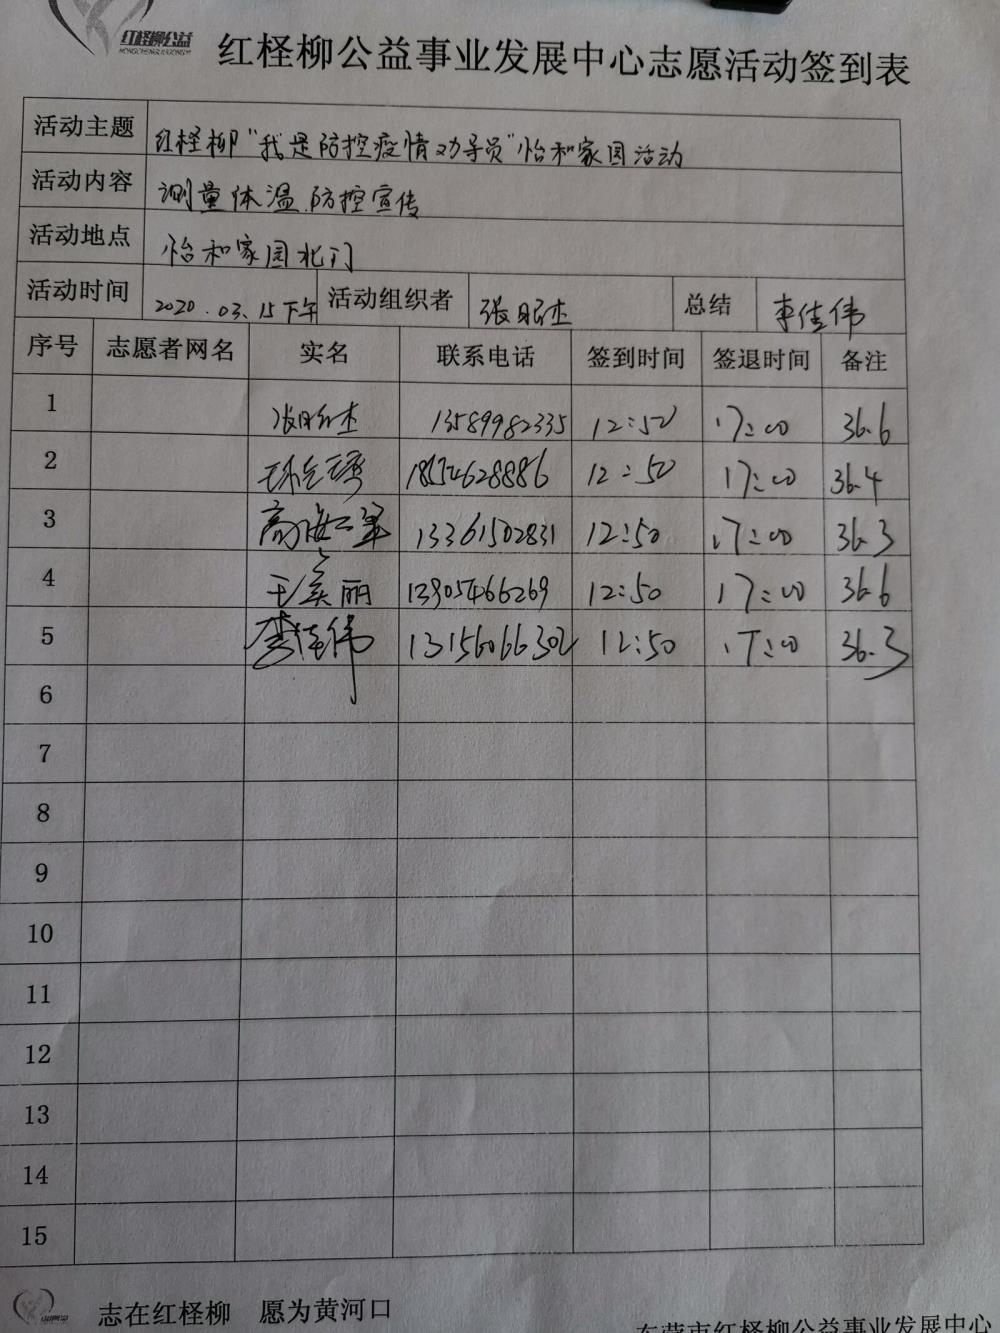 红柽柳公益
红柽柳公益事业发展中心志愿活动签到表
活动主题 红柽柳“我是防控疫情劝导员”怡和家园活动
活动内容 测量体温、防控宣传
活动地点 怡和家园北门
活动时间 2020.03.15下午 活动组织者 张 杰 总结 李佳伟
序号 志愿者网名 实名 联系电话 签到时间 签退时间 备注
1 张 杰 13589982335 12:50 17:00 36.6
2 12:50 17:00 36.4
3 高海翠 13361502831 12:50 17:00 36.3
4 王美丽 13905466269 12:50 17:00 36.6
5 李佳伟 13156066302 12:50 17:00 36.3
6
7
8
9
10
11
12
13
14
15
志在红柽柳 愿为黄河口
东营市红柽柳公益事业发展中心